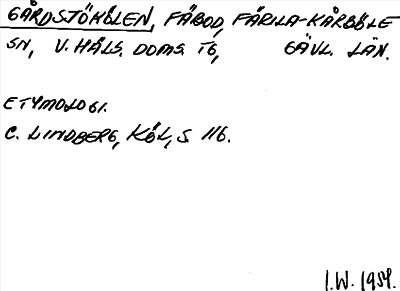 GÅRDSTÖKÖLEN, FÄBOD, FÄRILA-KÅRBÖLE
SN, V. HÄLS. DOMS. TG, GÄVL. LÄN.
ETYMOLOGI.
C. LINDBERG, KÖL, S 116.
I.W. 1959.